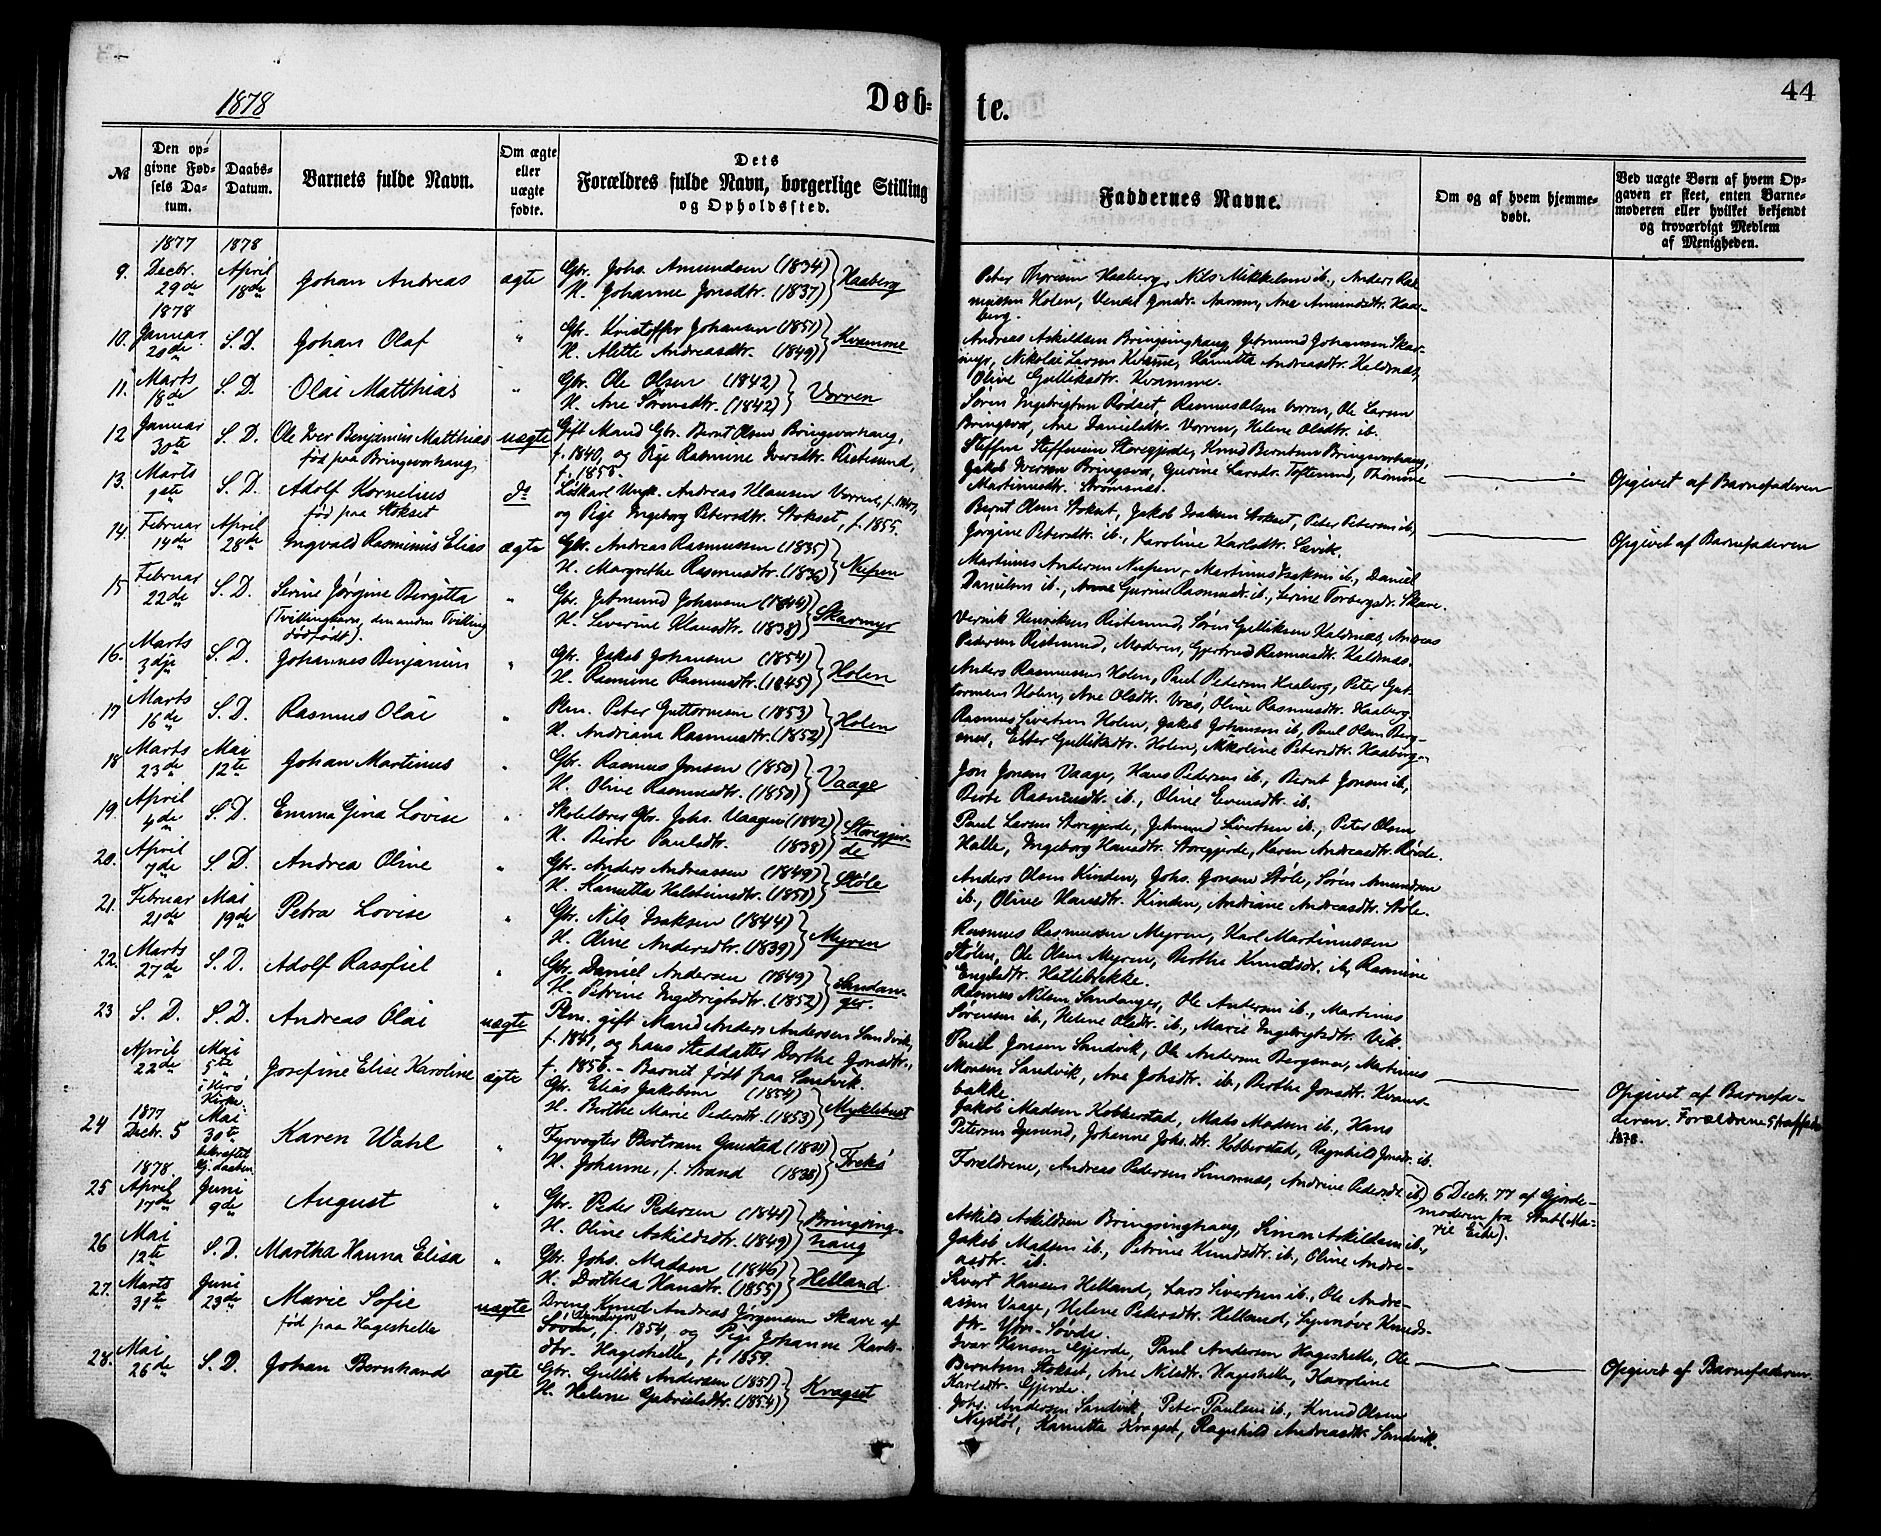 1878
Døb-
te.
44
№
Den op-
givne Fød-
sels Da-
tum.
Daabs-
Datum.
Barnets fulde Navn.
Om ægte
eller
uægte
fødte.
Dets
Forældres fulde Navn, borgerlige Stilling
og Opholdssted.
Faddernes Navne.
Om og af hvem hjemme-
døbt.
Ved uægte Børn af hvem Op-
gaven er skeet, enten Barne-
moderen eller hvilket bekjendt
og troværdigt Medlem
af Menigheden.
1877 1878
9. Decbr. 29de April 18de Johan Andreas ægte Gbr. Johs. Amundsen (1834)
H. Johanne Jonsdtr. (1837) Haaberg
Peter Haaberg, Nils Mikkelsen ib., Anders Ras-
mussen Holen, Vendel Jonsdr. Ane Amundsdtr. Haa-
berg.
1878
10. Januar 20de S. D. Johan Olaf " Gbr. Kristoffer Johansen (1851)
H. Alette Andreasdtr. (1849) Kvamme
Andreas Askildsen Bringsinghaug, Jetmund Johansen Skar-
myr, Nikolai Larsen Kvamme, Hansitta Andreasdtr. Koldnæs,
Oline Gulliksdtr. Kvamme.
11. Marts 18de S. D. Olai Matthias " Gbr. Ole Olsen (1842)
H. Ane Sørensdtr. (1842) Vorren
Søren Ingebrigtsen Rødset, Rasmus Olsen Vorren, Ole Larsen
Bringsvor, Ane Danielsdtr. Vorren, Helene Olsdtr. ib.
12 Januar 30te S. D. Ole Iver Benjamin Matthias uægte Gift Mand Gbr. Bernt Olsen Bringsvorhaug,
født paa Bringsvorhaug f. 1840, og Pige Rasmine Iversdtr. Ristesund,
f. 1856.
Steffen Steffensen Storegjerde, Knud Berntsen Bringsvorhaug,
Jakob Iversen Bringsvor, Gurine Larsdr. Toftesund, Thomine
Martinusdtr. Strømsnes.
Opgivet af Barnefaderen
13. Marts 9de S. D. Adolf Kornelius do Løskarl Ungk. Andreas Klausen Vorren, f. 1847,
født paa Stokset og Pige Ingeborg Petersdtr. Stokset, f. 1855.
Bernt Olsen Stokset, Jakob Isaksen Stokset, Peter Petersen ib.,
Jørgine Petersdtr. ib., Karoline Karlsdtr. Sævik.
Opgivet af Barnefaderen
14. Februar 14de April 28de Ingvald Rasmus Elias ægte Gbr. Andreas Rasmussen (1835)
H. Margrethe Rasmusdtr. (1836) Neipen
Martinus Andersen Neipen, Martinus Isaksen ib., Daniel
Danielsen ib., Gurine Rasmusdr. ib., Serine Torbergsdr. Skare.
15 Februar 22de S. D. Serine Jørgine Bergitta " Gbr. Jetmund Johansen (1844)
(Tvillingbarn, den anden Tvilling H. Severine Klausdtr. (1838) Skarmyr
dødfødt).
Vernik Henriksen Ristesund, Søren Gulliksen Koldnæs, Andreas
Pedersen Ristesund, Moderen, Gjertrud Rasmusdtr. Koldnæs.
16. Marts 3dje S. D. Johannes Benjamin " Gbr. Jakob Johansen (1854)
H. Rasmine Rasmusdtr. (1845) Holen
Anders Rasmussen Holen, Paul Pedersen Haaberg, Peter Gut-
tormsen Holen, Ane Olsdtr. Voss, Oline Rasmusdtr. Haaberg.
17 Marts 16de S. D. Rasmus Olai " Plm. Peter Guttormsen (1853)
H. Andriana Rasmusdtr. (1852) Holen
Rasmus Sivertsen Holen, Jakob Johansen ib., Paul Olsen Berg-
snes, Ester Gulliksdtr. Holen, Nikoline Petersdtr. Haaberg.
18 Marts 23de Mai 12te Johan Martinus " Gbr. Rasmus Jonsen (1850)
H. Oline Rasmusdtr. (1850) Vaage
Jon Jonsen Vaage, Hans Pedersen ib., Bernt Jonsen ib.,
Berte Rasmusdtr. ib., Oline Evensdtr. ib.
19. April 4de S. D. Emma Gina Lovise " Skolelærer Gbr. Johs. Vaagen (1842)
H. Birte Paulsdtr. (1838) Storegjer-
de
Paul Larsen Storegjerde, Jetmund Sivertsen ib., Peter Olsen
Halle, Ingeborg Hansdtr. Storegjerde, Karen Andreasdtr. Røvde.
20. April 9de S. D. Andrea Oline " Gbr. Anders Andreassen (1849)
H. Hansitta Halsteinsdtr. (1850) Støle
Anders Olsen Kinden, Johs. Jonsen Støle, Søren Amundsen
ib., Oline Hansdtr. Kinden, Andriane Andreasdtr. Støle.
21. Februar 21de Mai 19de Petra Lovise " Gbr. Nils Isaksen (1844)
H. Oline Andersdtr. (1839) Myren
Rasmus Rasmussen Myren, Karl Martinussen
Stølen, Ole Olsen Myren, Berthe Knudsdr. ib., Rasmine
Engelsdtr. Hatlebrekke.
22. Marts 27de S. D. Adolf Rasofiel " Gbr. Daniel Andersen (1849)
H. Petrine Ingebrigtsdtr. (1852) Sandan-
ger.
Rasmus Nilsen Sandanger, Ole Andersen ib., Martinus
Sørensen ib., Helene Olsdtr. ib., Marie Ingebrigtsdtr. Vik.
23 S. D. S. D. Andreas Olai uægte Plm. gift Mand Anders Andersen Sandvik,
f. 1841, og hans Steddatter Dorthe Jonsdtr.,
f. 1856. - Barnet født paa Sandvik.
Paul Jonsen Sandvik, Ole Andersen Bergsnes, Martinus
Monsen Sandvik, Ane Johsdtr. ib., Berthe Jonsdtr. Kvams-
bakke.
Opgivet af Barnefa-
deren. Forældrene straffede
1878.
April 22de Mai 5te i Herø Kirke. Josefine Elise Karoline ægte Gbr. Elias Jakobsen (1854)
H. Berthe Marie Pedersdtr. (1853) Myklebust
Jakob Madsen Kobberstad, Mats Madsen ib., Hans
Petersen Igesund, Johanne Johs.dtr. Kobberstad, Ragnhild Jonsdr. ib.
24 1877 Decbr. 5 Mai 30te bekræftet Hj. daaben Karen Wahl " Fyrvogter Bertram Gaustad (1831)
H. Johanne, f. Strand (1838) Svinø
Forældrene, Andreas Pedersen Simonnes, Andrine Pedersdt. ib.
6 Decbr. 77 af Gjorde-
moderen paa Stadt (Ma-
rie Eide).
1878
25 April 17de Juni 9de August " Gbr. Peder Pedersen (1841)
H. Oline Askildsdtr. (1849) Bringsing-
haug
Askild Askildsen Bringsinghaug, Simon Askildsen ib.,
Jakob Madsen ib., Petrine Knudsdtr. ib., Oline Andre-
asdtr. ib.
26 Mai 12te S. D. Martha Hanna Elisa " Gbr. Johs. Madsen (1846)
H. Dorthea Hansdtr. (1855) Helland
Sivert Hansen Helland, Lars Sivertsen ib., Ole Andre-
asen Vaage, Helene Petersdtr. Helland, Synnøve Knuds-
dtr. Ytre-Søvde.
27. Marts 31te Juni 23de Marie Sofie uægte Dreng Knud Andreas Jørgensen Skare af
født paa Hageskelle Søvde, Sandvigen f. 1854, og Pige Johanne Karls-
dtr. Hageskelle, f. 1859.
Ivar Hansen Gjerde, Paul Andersen Hageskelle, Ole
Berntsen Stokset, Ane Nilsdtr. Hageskelle, Karoline
Karlsdtr. Gjerde.
Opgivet af Barnefaderen
28. Mai 26de S. D. Johan Bernhard ægte Gbr. Gullik Andersen (1851)
H. Helene Gabrielsdtr. (1854) Kragset
Johs. Andersen Sandvik, Peter Paulsen ib., Knud Olsen
Nystøl, Hansitta Kragset, Ragnhild Andreasdtr. Sandvik.